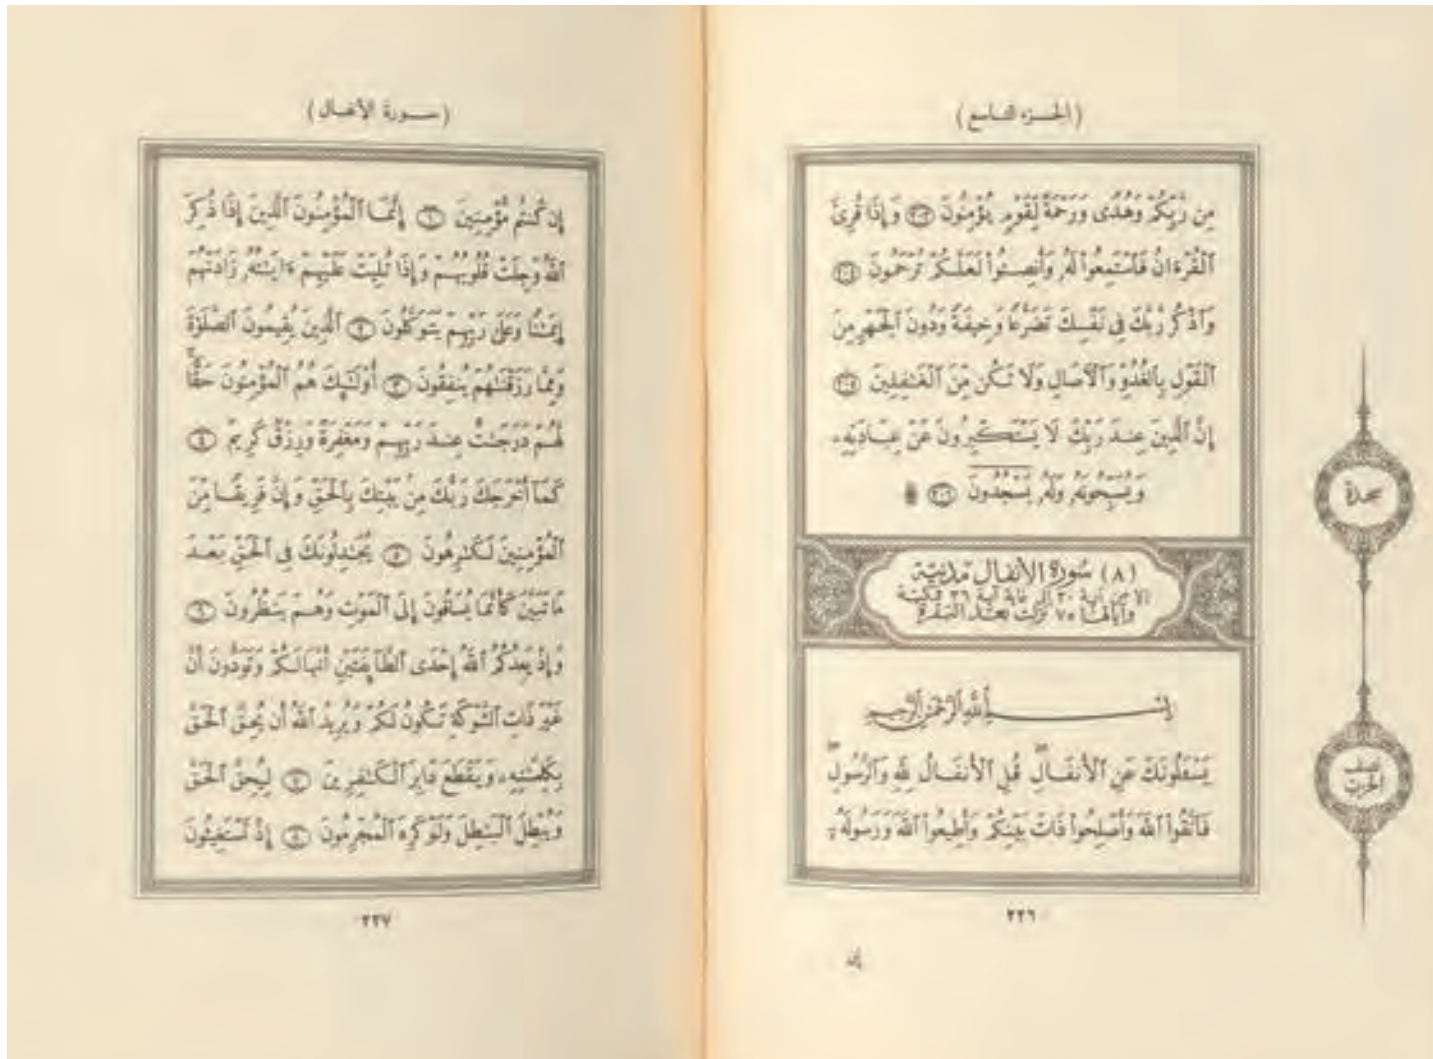 (الجزء التاسع)
مِن رَّبِّكُمْ وَهُدًى وَرَحْمَةٌ لِّقَوْمٍ يُؤْمِنُونَ ٢٠٣ وَإِذَا قُرِئَ
ٱلْقُرْءَانُ فَٱسْتَمِعُواْ لَهُۥ وَأَنصِتُواْ لَعَلَّكُمْ تُرْحَمُونَ ٢٠٤
وَٱذْكُر رَّبَّكَ فِى نَفْسِكَ تَضَرُّعًا وَخِيفَةً وَدُونَ ٱلْجَهْرِ مِنَ
ٱلْقَوْلِ بِٱلْغُدُوِّ وَٱلْءَاصَالِ وَلَا تَكُن مِّنَ ٱلْغَٰفِلِينَ ٢٠٥
إِنَّ ٱلَّذِينَ عِندَ رَبِّكَ لَا يَسْتَكْبِرُونَ عَنْ عِبَادَتِهِۦ
وَيُسَبِّحُونَهُۥ وَلَهُۥ يَسْجُدُونَ ٢٠٦ ۩
سجدة
(٨) سُورَةُ الأَنفَالِ مَدَنِيَّة
إلا من آية ٣٠ إلى غاية آية ٣٦ فمكية
وآياتها ٧٥ نزلت بعد البقرة
بِسْمِ ٱللَّهِ ٱلرَّحْمَٰنِ ٱلرَّحِيمِ
يَسْـَٔلُونَكَ عَنِ ٱلْأَنفَالِ ۖ قُلِ ٱلْأَنفَالُ لِلَّهِ وَٱلرَّسُولِ ۖ
فَٱتَّقُواْ ٱللَّهَ وَأَصْلِحُواْ ذَاتَ بَيْنِكُمْ وَأَطِيعُواْ ٱللَّهَ وَرَسُولَهُۥٓ
نصف
الحزب
٢٢٦
إن
(سورة الأنفال)
إِن كُنتُم مُّؤْمِنِينَ ١ إِنَّمَا ٱلْمُؤْمِنُونَ ٱلَّذِينَ إِذَا ذُكِرَ
ٱللَّهُ وَجِلَتْ قُلُوبُهُمْ وَإِذَا تُلِيَتْ عَلَيْهِمْ ءَايَٰتُهُۥ زَادَتْهُمْ
إِيمَٰنًا وَعَلَىٰ رَبِّهِمْ يَتَوَكَّلُونَ ٢ ٱلَّذِينَ يُقِيمُونَ ٱلصَّلَوٰةَ
وَمِمَّا رَزَقْنَٰهُمْ يُنفِقُونَ ٣ أُوْلَٰٓئِكَ هُمُ ٱلْمُؤْمِنُونَ حَقًّا ۚ
لَّهُمْ دَرَجَٰتٌ عِندَ رَبِّهِمْ وَمَغْفِرَةٌ وَرِزْقٌ كَرِيمٌ ٤
كَمَآ أَخْرَجَكَ رَبُّكَ مِنۢ بَيْتِكَ بِٱلْحَقِّ وَإِنَّ فَرِيقًا مِّنَ
ٱلْمُؤْمِنِينَ لَكَٰرِهُونَ ٥ يُجَٰدِلُونَكَ فِى ٱلْحَقِّ بَعْدَ
مَا تَبَيَّنَ كَأَنَّمَا يُسَاقُونَ إِلَى ٱلْمَوْتِ وَهُمْ يَنظُرُونَ ٦
وَإِذْ يَعِدُكُمُ ٱللَّهُ إِحْدَى ٱلطَّآئِفَتَيْنِ أَنَّهَا لَكُمْ وَتَوَدُّونَ أَنَّ
غَيْرَ ذَاتِ ٱلشَّوْكَةِ تَكُونُ لَكُمْ وَيُرِيدُ ٱللَّهُ أَن يُحِقَّ ٱلْحَقَّ
بِكَلِمَٰتِهِۦ وَيَقْطَعَ دَابِرَ ٱلْكَٰفِرِينَ ٧ لِيُحِقَّ ٱلْحَقَّ
وَيُبْطِلَ ٱلْبَٰطِلَ وَلَوْ كَرِهَ ٱلْمُجْرِمُونَ ٨ إِذْ تَسْتَغِيثُونَ
٢٢٧